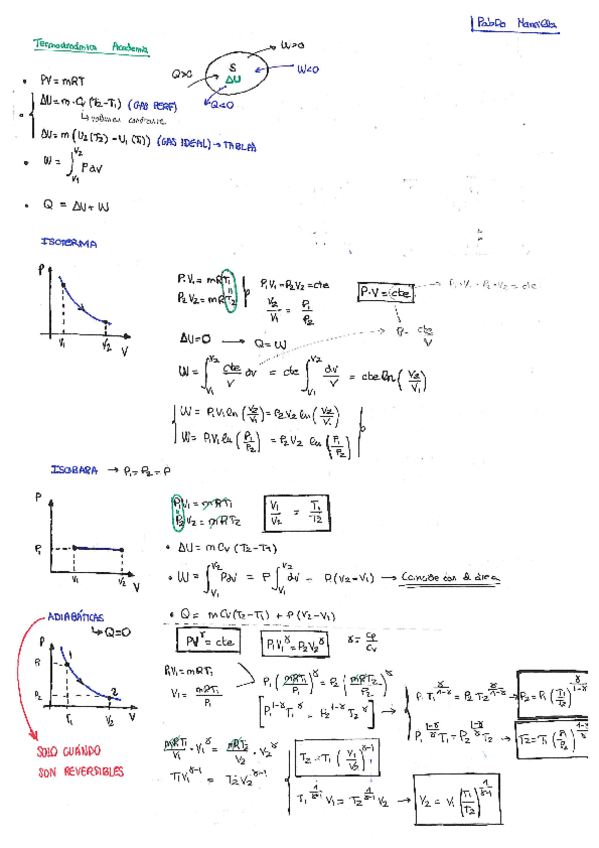 Pablo Mansilla
Termodinámica Academia
W>0
Q>0
S
ΔU
W<0
Q<0
• PV = mRT
ΔU = m · Cv (T2-T1) (GAS PERF)
↳ volumen constante
ΔU = m (U2(T2) - U1(T1)) (GAS IDEAL) → TABLAS
• W = ∫V1V2 PdV
• Q = ΔU + W
ISOTERMA
P
V1 V2 V
P1V1 = mRT1
P2V2 = mRT2
P1V1 = P2V2 = cte
V2/V1 = P1/P2
P·V = cte
P1·V1 = P2·V2 = cte
P = cte/V
ΔU=0 → Q=W
W = ∫V1V2 cte/V dV = cte ∫V1V2 dV/V = cte ln(V2/V1)
W = P1V1 ln(V2/V1) = P2V2 ln(V2/V1)
W = P1V1 ln(P1/P2) = P2V2 ln(P1/P2)
ISOBARA → P1 = P2 = P
P
P1
V1 V2 V
P1V1 = mRT1
P2V2 = mRT2
V1/V2 = T1/T2
• ΔU = mCv (T2-T1)
• W = ∫V1V2 PdV = P ∫V1V2 dV = P(V2-V1) → Coincide con el área
• Q = mCv(T2-T1) + P(V2-V1)
ADIABÁTICAS
↳ Q=0
P
1
P2
2
V2 V
SOLO CUÁNDO
SON REVERSIBLES
PV^γ = cte
P1V1^γ = P2V2^γ
γ = Cp/Cv
P1V1 = mRT1
V1 = mRT1/P1
P1 (mRT1/P1)^γ = P2 (mRT2/P2)^γ
[P1^1-γ T1^γ = P2^1-γ T2^γ]
P1 T1^γ/1-γ = P2 T2^γ/1-γ → P2 = P1 (T1/T2)^γ/1-γ
P1^1-γ/γ T1 = P2^1-γ/γ T2 → T2 = T1 (P1/P2)^1-γ/γ
mRT1/V1 · V1^γ = mRT2/V2 · V2^γ
T1V1^γ-1 = T2V2^γ-1
T2 = T1 (V1/V2)^γ-1
T1^1/γ-1 V1 = T2^1/γ-1 V2 → V2 = V1 (T1/T2)^1/γ-1